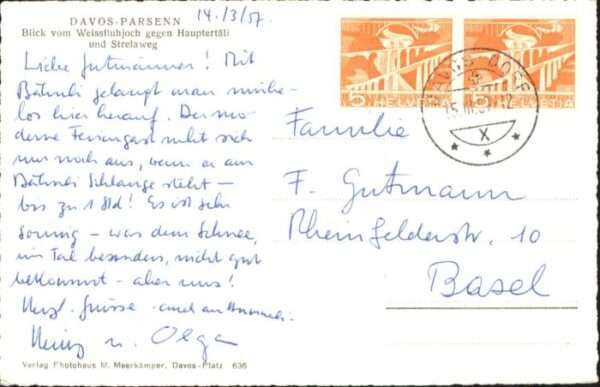 14./3/57.
DAVOS-PARSENN
Blick vom Weissfluhjoch gegen Hauptertäli
und Strelaweg
Liebe Gutmänner! Mit
Bähnli gelangt man mühe-
los hier herauf. Der mo-
derne Feriengast ruht sich
nur noch aus, wenn er am
Bähnli Schlange steht –
bis zu 1 Std! Es ist sehr
sonnig – was dem Schnee,
im Tal besonders, nicht gut
bekommt – aber uns!
Herzl. Grüsse auch an
Heinz u. Olga
Verlag Photohaus M. Meerkämper, Davos-Platz 635
5 HELVETIA 5 HELVETIA
DAVOS DORF
15.III.57-12
X
Familie
F. Gutmann
Rheinfelderstr. 10
Basel